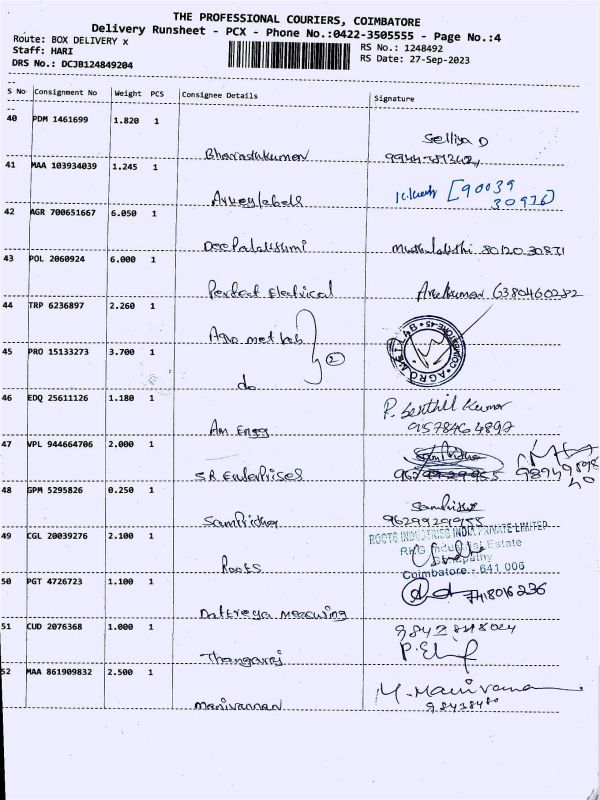 THE PROFESSIONAL COURIERS, COIMBATORE
Delivery Runsheet - PCX - Phone No.:0422-3505555 - Page No.:4
Route: BOX DELIVERY x
RS No.: 1248492
Staff: HARI
RS Date: 27-Sep-2023
DRS No.: DCJB124849204
S No Consignment No Weight PCS Consignee Details Signature
40 PDM 1461699 1.820 1
Selliya D
Bharathkumar
41 MAA 103934039 1.245 1
[90039
Arkeylabels 30976]
42 AGR 700651667 6.050 1
Deepalakshmi 80120 30871
43 POL 2060924 6.000 1
Perfect Electrical Arulkumar 6380460282
44 TRP 6236897 2.260 1
Agro met lab
2
AGRO MET LAB COIMBATORE-45
45 PRO 15133273 3.700 1
do
46 EDQ 25611126 1.180 1
P. Senthil Kumar
Am Engg 9578464897
47 VPL 944664706 2.000 1
SR Enterprises
48 GPM 5295826 0.250 1
Sampridha
9629929955
49 CGL 20039276 2.100 1
ROOTS INDUSTRIES INDIA PRIVATE LIMITED
RKG Industrial Estate
Ganapathy
Coimbatore - 641 006
Roots
50 PGT 4726723 1.100 1
7418016236
Dattreya Measuring
51 CUD 2076368 1.000 1
Thangaraj
52 MAA 861909832 2.500 1
M. Manivanna
Manivannan